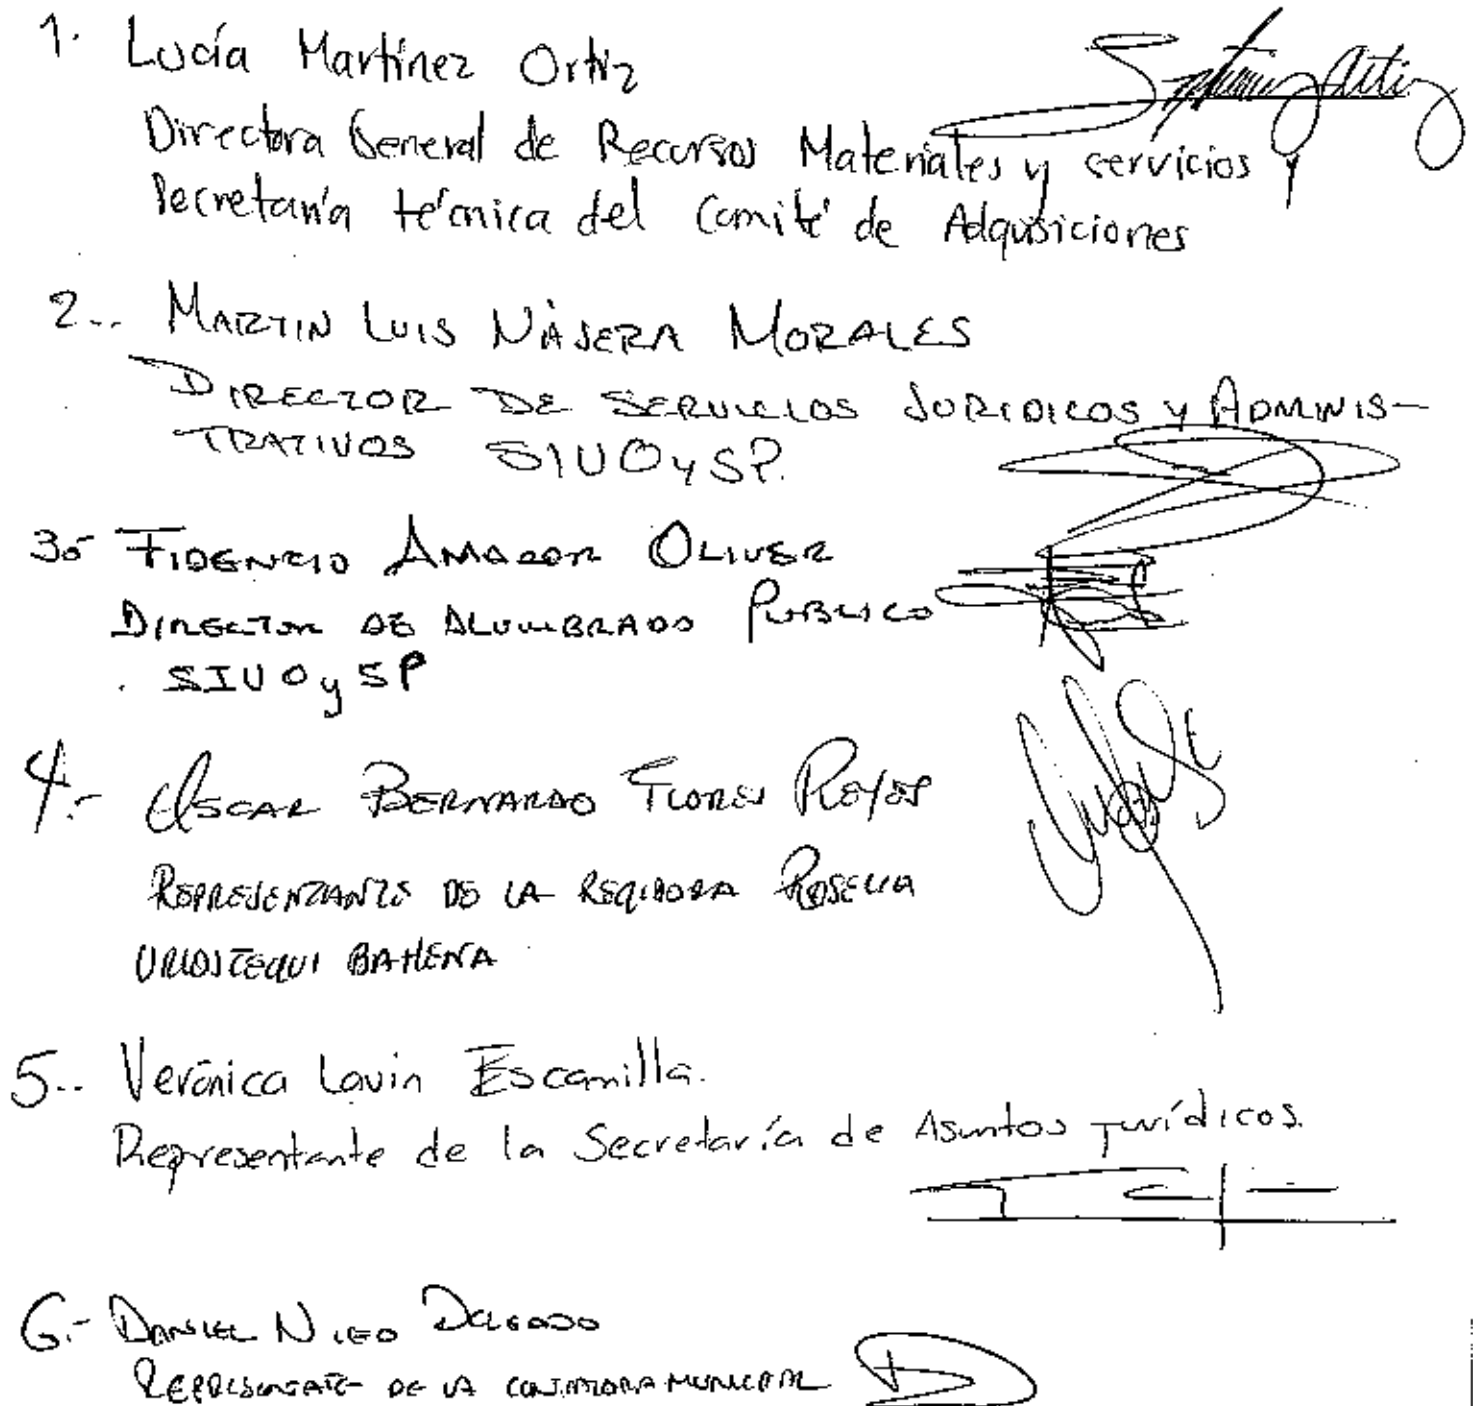 1. Lucía Martínez Ortiz
Directora General de Recursos Materiales y servicios y
Secretaria técnica del Comité de Adquisiciones
2.- MARTIN LUIS NÁJERA MORALES
DIRECTOR DE SERVICIOS JURIDICOS y ADMINIS-
TRATIVOS SIUOySP.
3.- FIDENCIO AMADOR OLIVER
DIRECTOR DE ALUMBRADO PUBLICO
SIUOySP
4.- OSCAR BERNARDO FLORES REYES
REPRESENTANTE DE LA REGIDORA ROSELIA
URIOSTEGUI BAHENA
5.- Verónica Lavin Escamilla.
Representante de la Secretaría de Asuntos Jurídicos.
6.- DANIEL NIETO DELGADO
REPRESENTANTE DE LA CONTRALORA MUNICIPAL